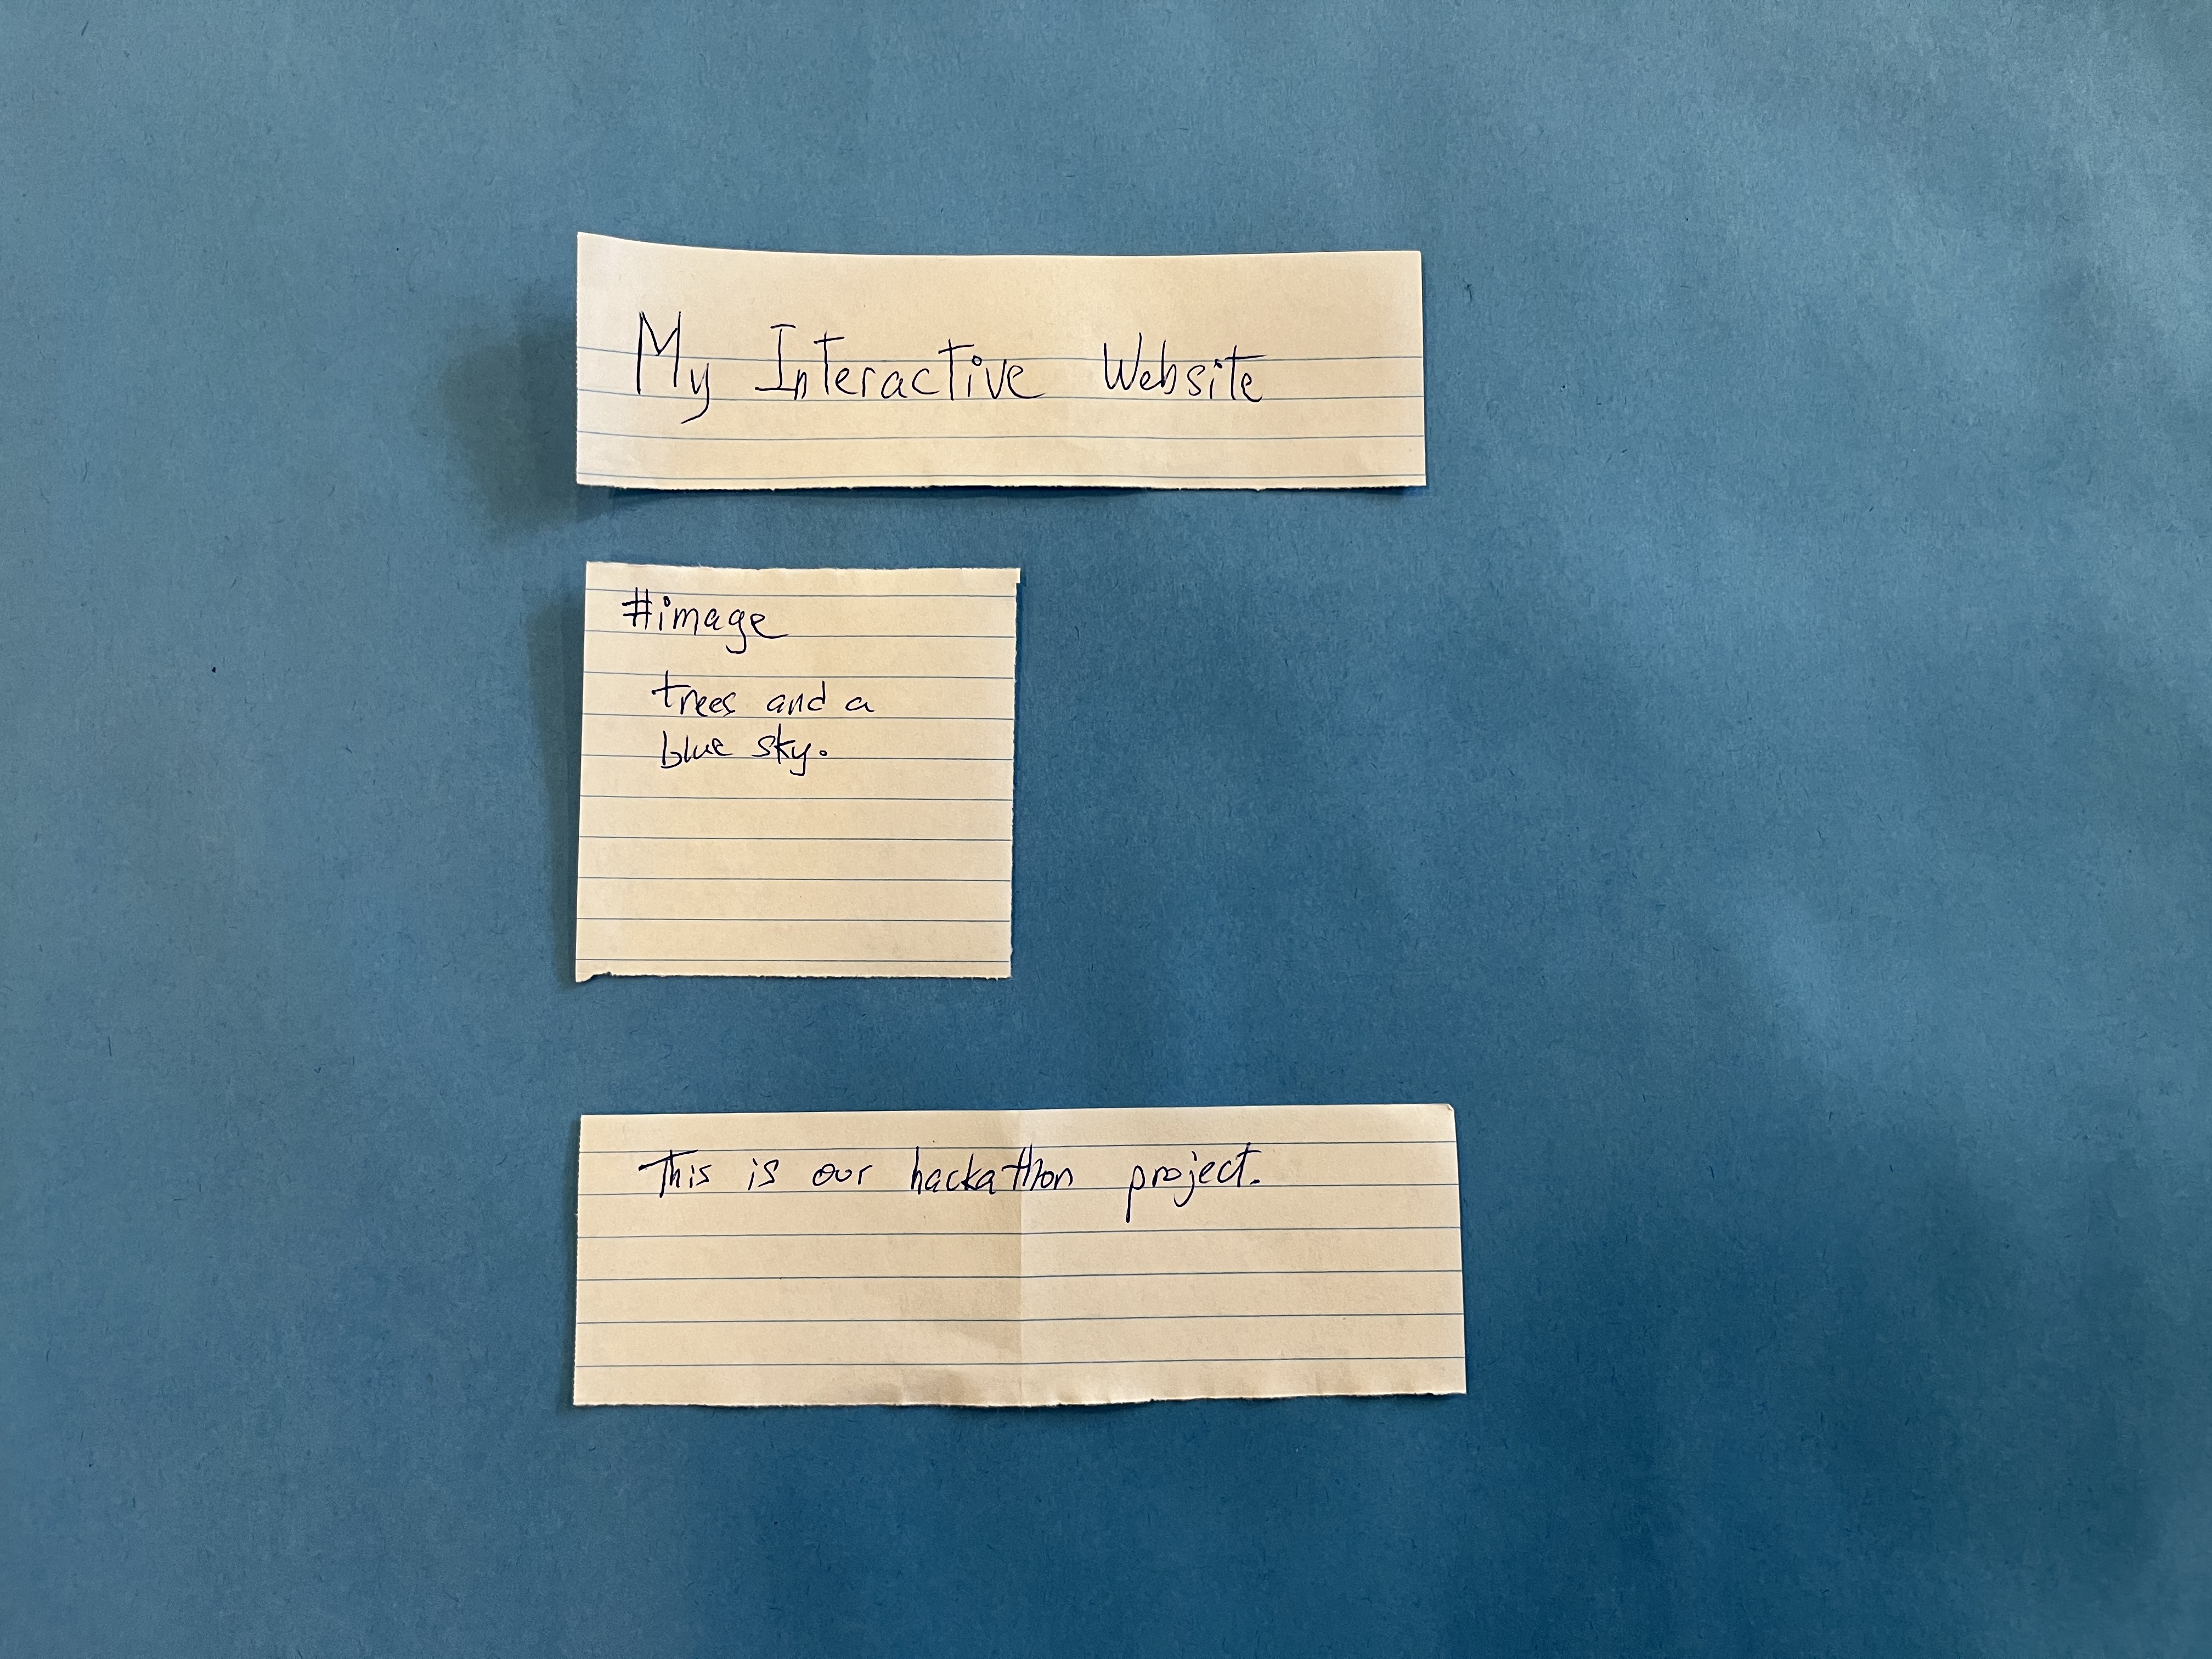 My Interactive Website
#image
trees and a
blue sky.
This is our hackathon project.